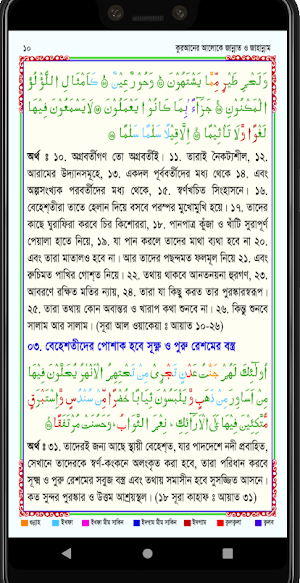 ১০ কুরআনের আলোকে জান্নাত ও জাহান্নাম
وَلَحْمِ طَيْرٍ مِّمَّا يَشْتَهُوْنَ ۝ وَحُوْرٌ عِيْنٌ ۝ كَاَمْثَالِ اللُّؤْلُؤِ
الْمَكْنُوْنِ ۝ جَزَآءًۢ بِمَا كَانُوْا يَعْمَلُوْنَ ۝ لَا يَسْمَعُوْنَ فِيْهَا
لَغْوًا وَّلَا تَاْثِيْمًا ۝ اِلَّا قِيْلًا سَلٰمًا سَلٰمًا ۝
অর্থ : ১০. অগ্রবর্তীগণ তো অগ্রবর্তীই। ১১. তারাই নৈকট্যশীল, ১২.
আরামের উদ্যানসমূহে, ১৩. একদল পূর্ববর্তীদের মধ্য থেকে ১৪. এবং
অল্পসংখ্যক পরবর্তীদের মধ্য থেকে, ১৫. স্বর্ণখচিত সিংহাসনে। ১৬.
বেহেশ্তীরা তাতে হেলান দিয়ে বসবে পরস্পর মুখোমুখি হয়ে। ১৭. তাদের
কাছে ঘুরাফিরা করবে চির কিশোররা, ১৮. পানপাত্র কুঁজা ও খাঁটি সুরাপূর্ণ
পেয়ালা হাতে নিয়ে, ১৯. যা পান করলে তাদের মাথা ব্যথা হবে না ২০.
এবং তারা মাতালও হবে না। আর তাদের পছন্দমত ফলমূল নিয়ে ২১. এবং
রুচিমত পাখির গোশ্ত নিয়ে। ২২. তথায় থাকবে আনতনয়না হুরগণ, ২৩.
আবরণে রক্ষিত মতির ন্যায়, ২৪. তারা যা কিছু করত তার পুরস্কারস্বরূপ।
২৫. তারা তথায় কোন অবান্তর ও খারাপ কথা শুনবে না। ২৬. কিন্তু শুনবে
সালাম আর সালাম। (সূরা আল ওয়াকেয়া : আয়াত ১০-২৬)
০৩. বেহেশতীদের পোশাক হবে সূক্ষ্ম ও পুরু রেশমের বস্ত্র
اُولٰٓئِكَ لَهُمْ جَنّٰتُ عَدْنٍ تَجْرِيْ مِنْ تَحْتِهِمُ الْاَنْهٰرُ يُحَلَّوْنَ فِيْهَا
مِنْ اَسَاوِرَ مِنْ ذَهَبٍ وَّيَلْبَسُوْنَ ثِيَابًا خُضْرًا مِّنْ سُنْدُسٍ وَّاِسْتَبْرَقٍ
مُّتَّكِئِيْنَ فِيْهَا عَلَى الْاَرَآئِكِ ؕ نِعْمَ الثَّوَابُ ؕ وَحَسُنَتْ مُرْتَفَقًا ۝
অর্থ : ৩১. তাদেরই জন্য আছে স্থায়ী বেহেশ্ত, যার পাদদেশে নদী প্রবাহিত,
সেখানে তাদেরকে স্বর্ণ-কংকনে অলংকৃত করা হবে, তারা পরিধান করবে
সূক্ষ্ম ও পুরু রেশমের সবুজ বস্ত্র এবং তথায় সমাসীন হবে সুসজ্জিত আসনে।
কত সুন্দর পুরস্কার ও উত্তম আশ্রয়স্থল। (১৮ সূরা কাহাফ : আয়াত ৩১)
গুন্নাহ ইখফা ইখফা মীম সাকিন ইদগাম মীম সাকিন ইদগাম কলকলা ক্বলব